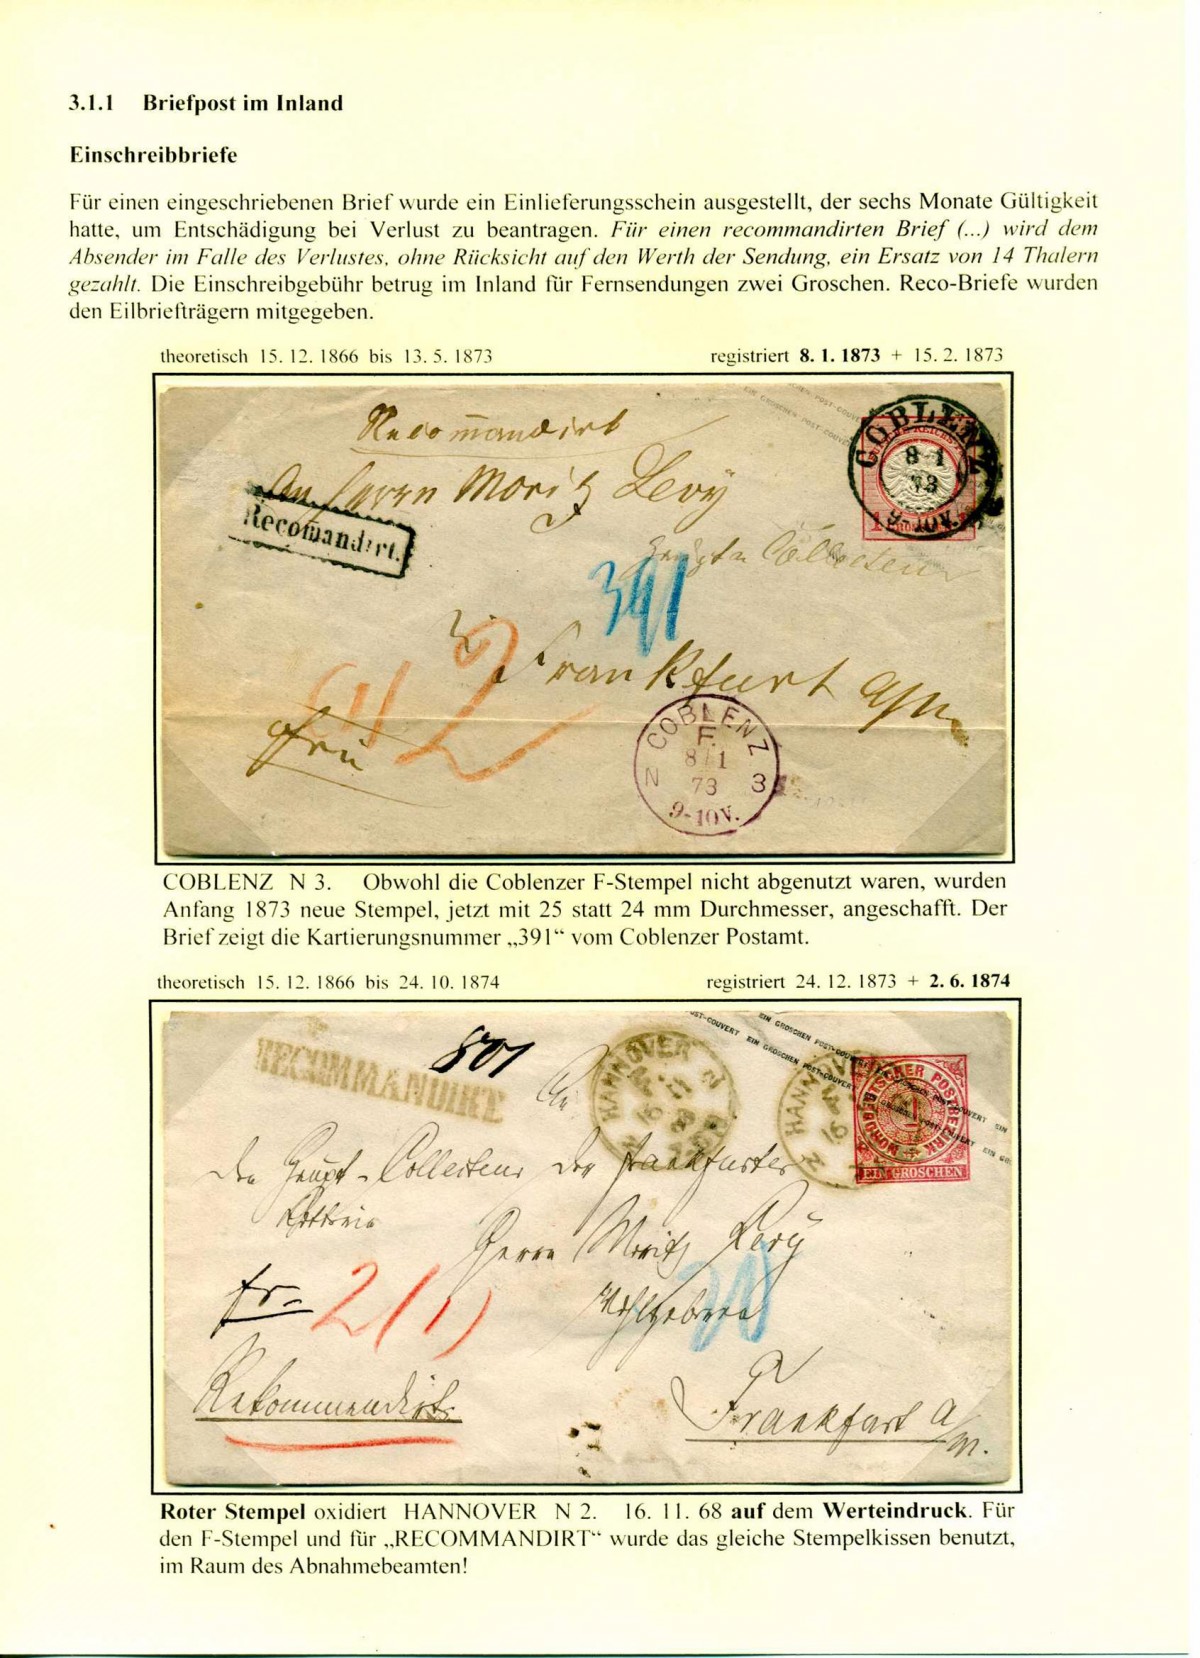 3.1.1 Briefpost im Inland
Einschreibbriefe
Für einen eingeschriebenen Brief wurde ein Einlieferungsschein ausgestellt, der sechs Monate Gültigkeit
hatte, um Entschädigung bei Verlust zu beantragen. Für einen recommandirten Brief (...) wird dem
Absender im Falle des Verlustes, ohne Rücksicht auf den Werth der Sendung, ein Ersatz von 14 Thalern
gezahlt. Die Einschreibgebühr betrug im Inland für Fernsendungen zwei Groschen. Reco-Briefe wurden
den Eilbriefträgern mitgegeben.
theoretisch 15. 12. 1866 bis 13. 5. 1873 registriert 8. 1. 1873 + 15. 2. 1873
EIN GROSCHEN POST-COUVERT
Recom̄andirt
COBLENZ
8 1
73
9-10V.
An Herrn Moritz Levy
Recom̄andirt.
391
Frankfurt a/m
(1) 2
frei
COBLENZ
F.
8 1
N 73 3
9-10V.
COBLENZ N 3. Obwohl die Coblenzer F-Stempel nicht abgenutzt waren, wurden
Anfang 1873 neue Stempel, jetzt mit 25 statt 24 mm Durchmesser, angeschafft. Der
Brief zeigt die Kartierungsnummer „391“ vom Coblenzer Postamt.
theoretisch 15. 12. 1866 bis 24. 10. 1874 registriert 24. 12. 1873 + 2. 6. 1874
EIN GROSCHEN POST-COUVERT
RECOMMANDIRT
801
HANNOVER N
HANNOVER
NORDDEUTSCHER POSTBEZIRK
1
EIN GROSCHEN
An
den Haupt-Collecteur der Frankfurter
Lotterie
Herrn Moritz Levy
Wohlgeboren
fr. 2 (1)
20
Rekommendirt
Frankfurt a/m.
Roter Stempel oxidiert HANNOVER N 2. 16. 11. 68 auf dem Werteindruck. Für
den F-Stempel und für „RECOMMANDIRT“ wurde das gleiche Stempelkissen benutzt,
im Raum des Abnahmebeamten!